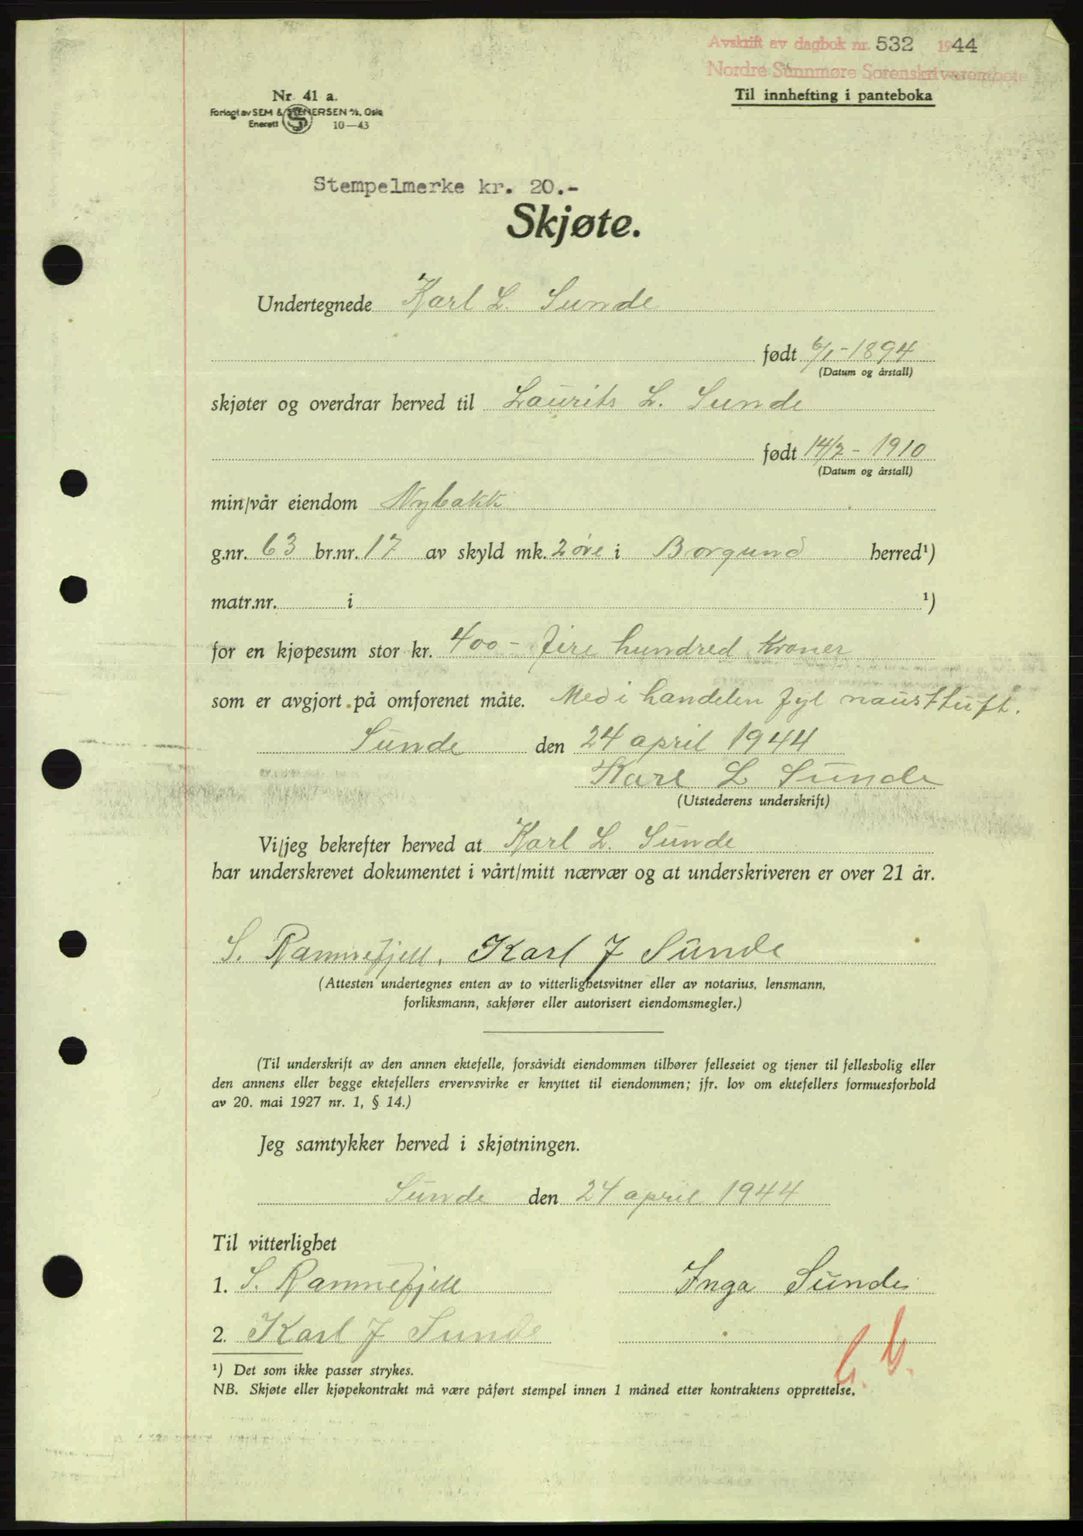 Avskrift av dagbok nr. 532 1944
Nordre Sunnmøre Sorenskriverembete
Til innhefting i panteboka
Nr. 41 a.
Forlagt av SEM & STENERSEN A/S, Oslo
Enerett 10—43
Stempelmerke kr. 20.-
Skjøte.
Undertegnede Karl L. Sunde
født 6/1-1894
(Datum og årstall)
skjøter og overdrar herved til Laurits L. Sunde
født 14/2-1910
(Datum og årstall)
min/vår eiendom Nybakk
g.nr. 63 br.nr. 17 av skyld mk. 2 øre i Borgund herred¹)
matr.nr. i ¹)
for en kjøpesum stor kr. 400 - fire hundred kroner
som er avgjort på omforenet måte. Med i handelen fyl nausttuft.
Sunde den 24 april 1944
Karl L Sunde
(Utstederens underskrift)
Vi/jeg bekrefter herved at Karl L. Sunde
har underskrevet dokumentet i vårt/mitt nærvær og at underskriveren er over 21 år.
S. Ramnefjell. Karl J Sunde
(Attesten undertegnes enten av to vitterlighetsvitner eller av notarius, lensmann,
forliksmann, sakfører eller autorisert eiendomsmegler.)
(Til underskrift av den annen ektefelle, forsåvidt eiendommen tilhører felleseiet og tjener til fellesbolig eller
den annens eller begge ektefellers ervervsvirke er knyttet til eiendommen; jfr. lov om ektefellers formuesforhold
av 20. mai 1927 nr. 1, § 14.)
Jeg samtykker herved i skjøtningen.
Sunde den 24 april 1944
Til vitterlighet
1. S. Ramnefjell Inga Sunde
2. Karl J Sunde
¹) Det som ikke passer strykes.
NB. Skjøte eller kjøpekontrakt må være påført stempel innen 1 måned etter kontraktens opprettelse.